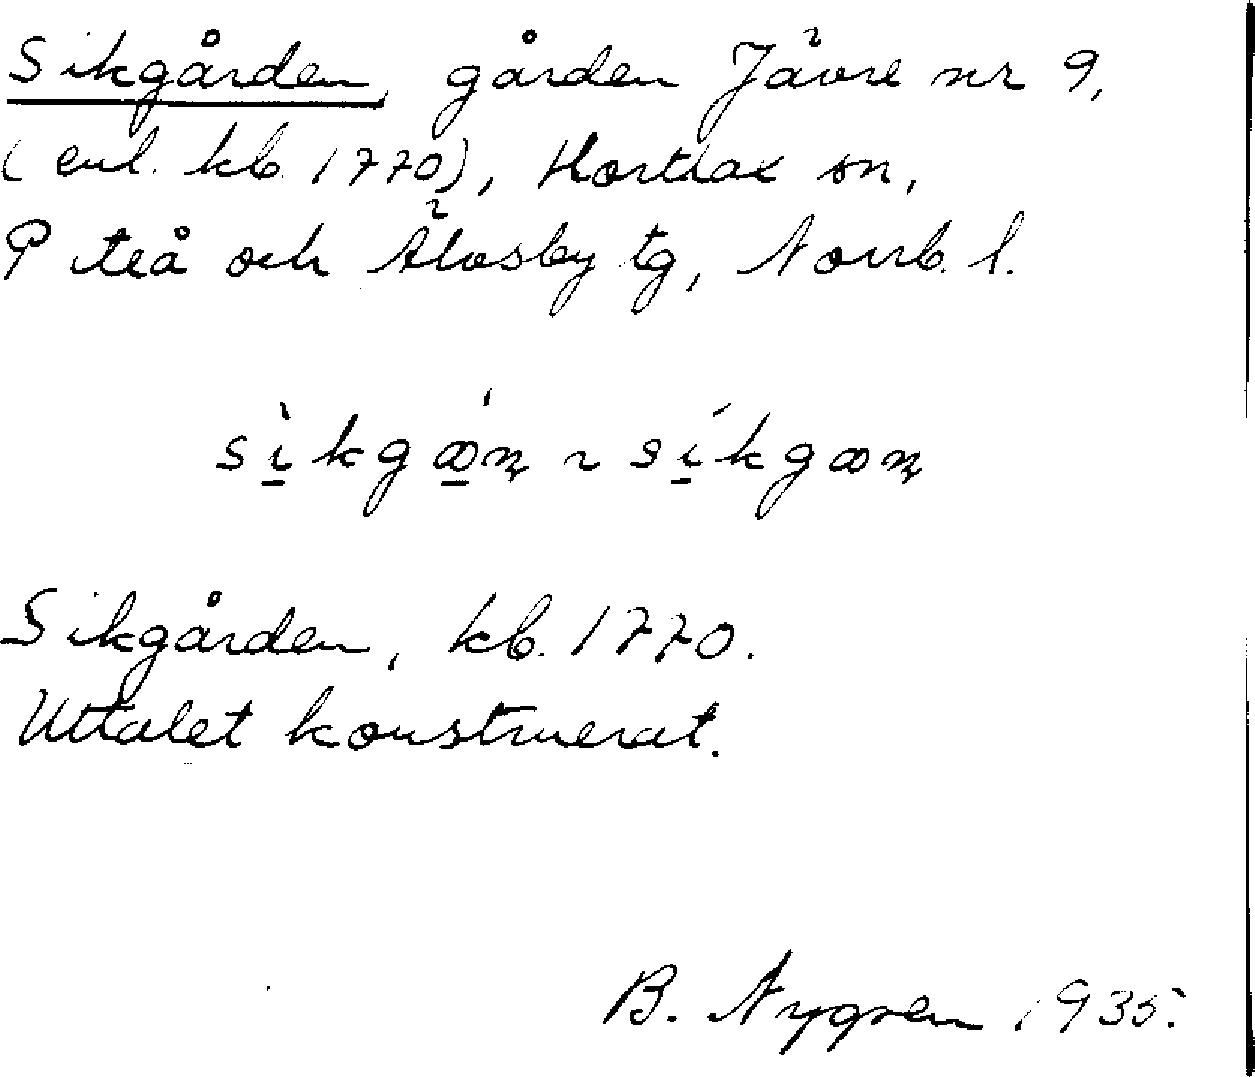 Sikgården, gården Jävre nr 9,
(enl. kb. 1770), Hortlax sn,
Piteå och Älvsby tg, Norrb. l.
sìkgɷ́ṇ ~ síkgɷṇ
Sikgården, kb. 1770.
Uttalet konstruerat.
B. Nygren 1935.